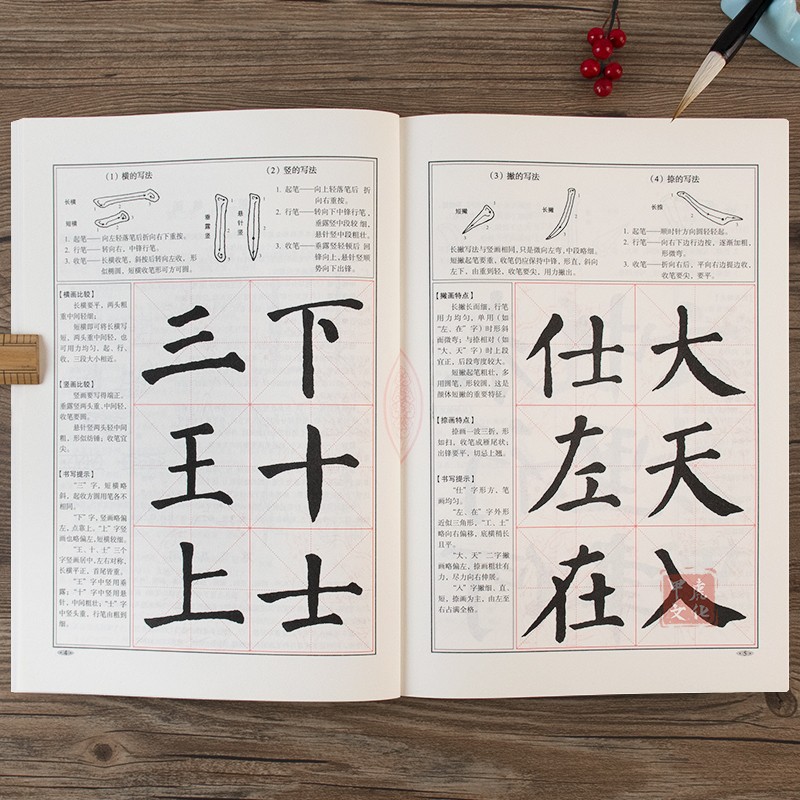 (1) 横的写法
长横
短横
1. 起笔——向左轻落笔后折向右下重按。
2. 行笔——转向右,中锋行笔。
3. 收笔——长横收笔,斜按后转向左收,形
似椭圆,短横收笔形可方可圆。
(2) 竖的写法
垂露竖
悬针竖
1. 起笔——向上轻落笔后 折
向右重按。
2. 行笔——转向下中锋行笔,
垂露竖中段较 细,
悬针竖中段粗壮。
3. 收笔——垂露竖轻顿后 回
锋向上,悬针竖顺
势向下出锋。
【横画比较】
长横要平,两头粗
重中间轻细;
短横即可将长横写
短,两头重中间轻,也
可用力均匀,起、行、
收,三段大小相近。
【竖画比较】
竖画要写得端正。
垂露竖两头重、中间轻,
收笔要圆。
悬针竖两头轻中间
粗,形似纺锤;收笔宜
尖。
【书写提示】
“三”字,短横略
斜,起收方圆用笔各不
相同。
“下”字,竖画略偏
左,点靠上。“上”字竖
画也略偏左,短横较细。
“王、十、士”三个
字竖画居中,左右对称,
长横平正,首尾皆重。
“王”字中竖用垂
露;“十”字中竖用悬
针,中间粗壮;“士”字
中竖头重,行笔由粗到
细。
三 下
王 十
上 士
4
(3) 撇的写法
短撇
长撇
长撇写法与竖画相同,只是微向左弯,中段略细。
短撇起笔要重、收笔仍应保持中锋,形直,斜向
左下,由重到轻,收笔要尖,用力撇出。
(4) 捺的写法
长捺
1. 起笔——顺时针方向圆转轻起。
2. 行笔——向右下边行边按,逐渐加粗,
形微弯。
3. 收笔——折向右后,平向右边提边收,
收笔要尖,要平。
【撇画特点】
长撇长而细,行笔
用力均匀,单用(如
“左、在”字)时形斜
而微弯;与捺相对(如
“大、天”字)时上段
宜正,后段弯度较大。
短撇起笔粗壮,多
用圆笔,形较圆,这是
颜体短撇的重要特征。
【捺画特点】
捺画一波三折,形
如扫,收笔成雁尾状;
出锋要平,切忌上翘。
【书写提示】
“仕”字形方,笔
画均匀。
“左、在”字外形
近似三角形,“工、土”
略向右偏移,底横稍长
且平。
“大、天”二字撇
画略偏左,捺画粗壮有
力,尽力向右伸展。
“人”字撇细、直、
短,捺画为主,由左至
右占满全格。
仕 大
左 天
在 人
5
甲虎
文化